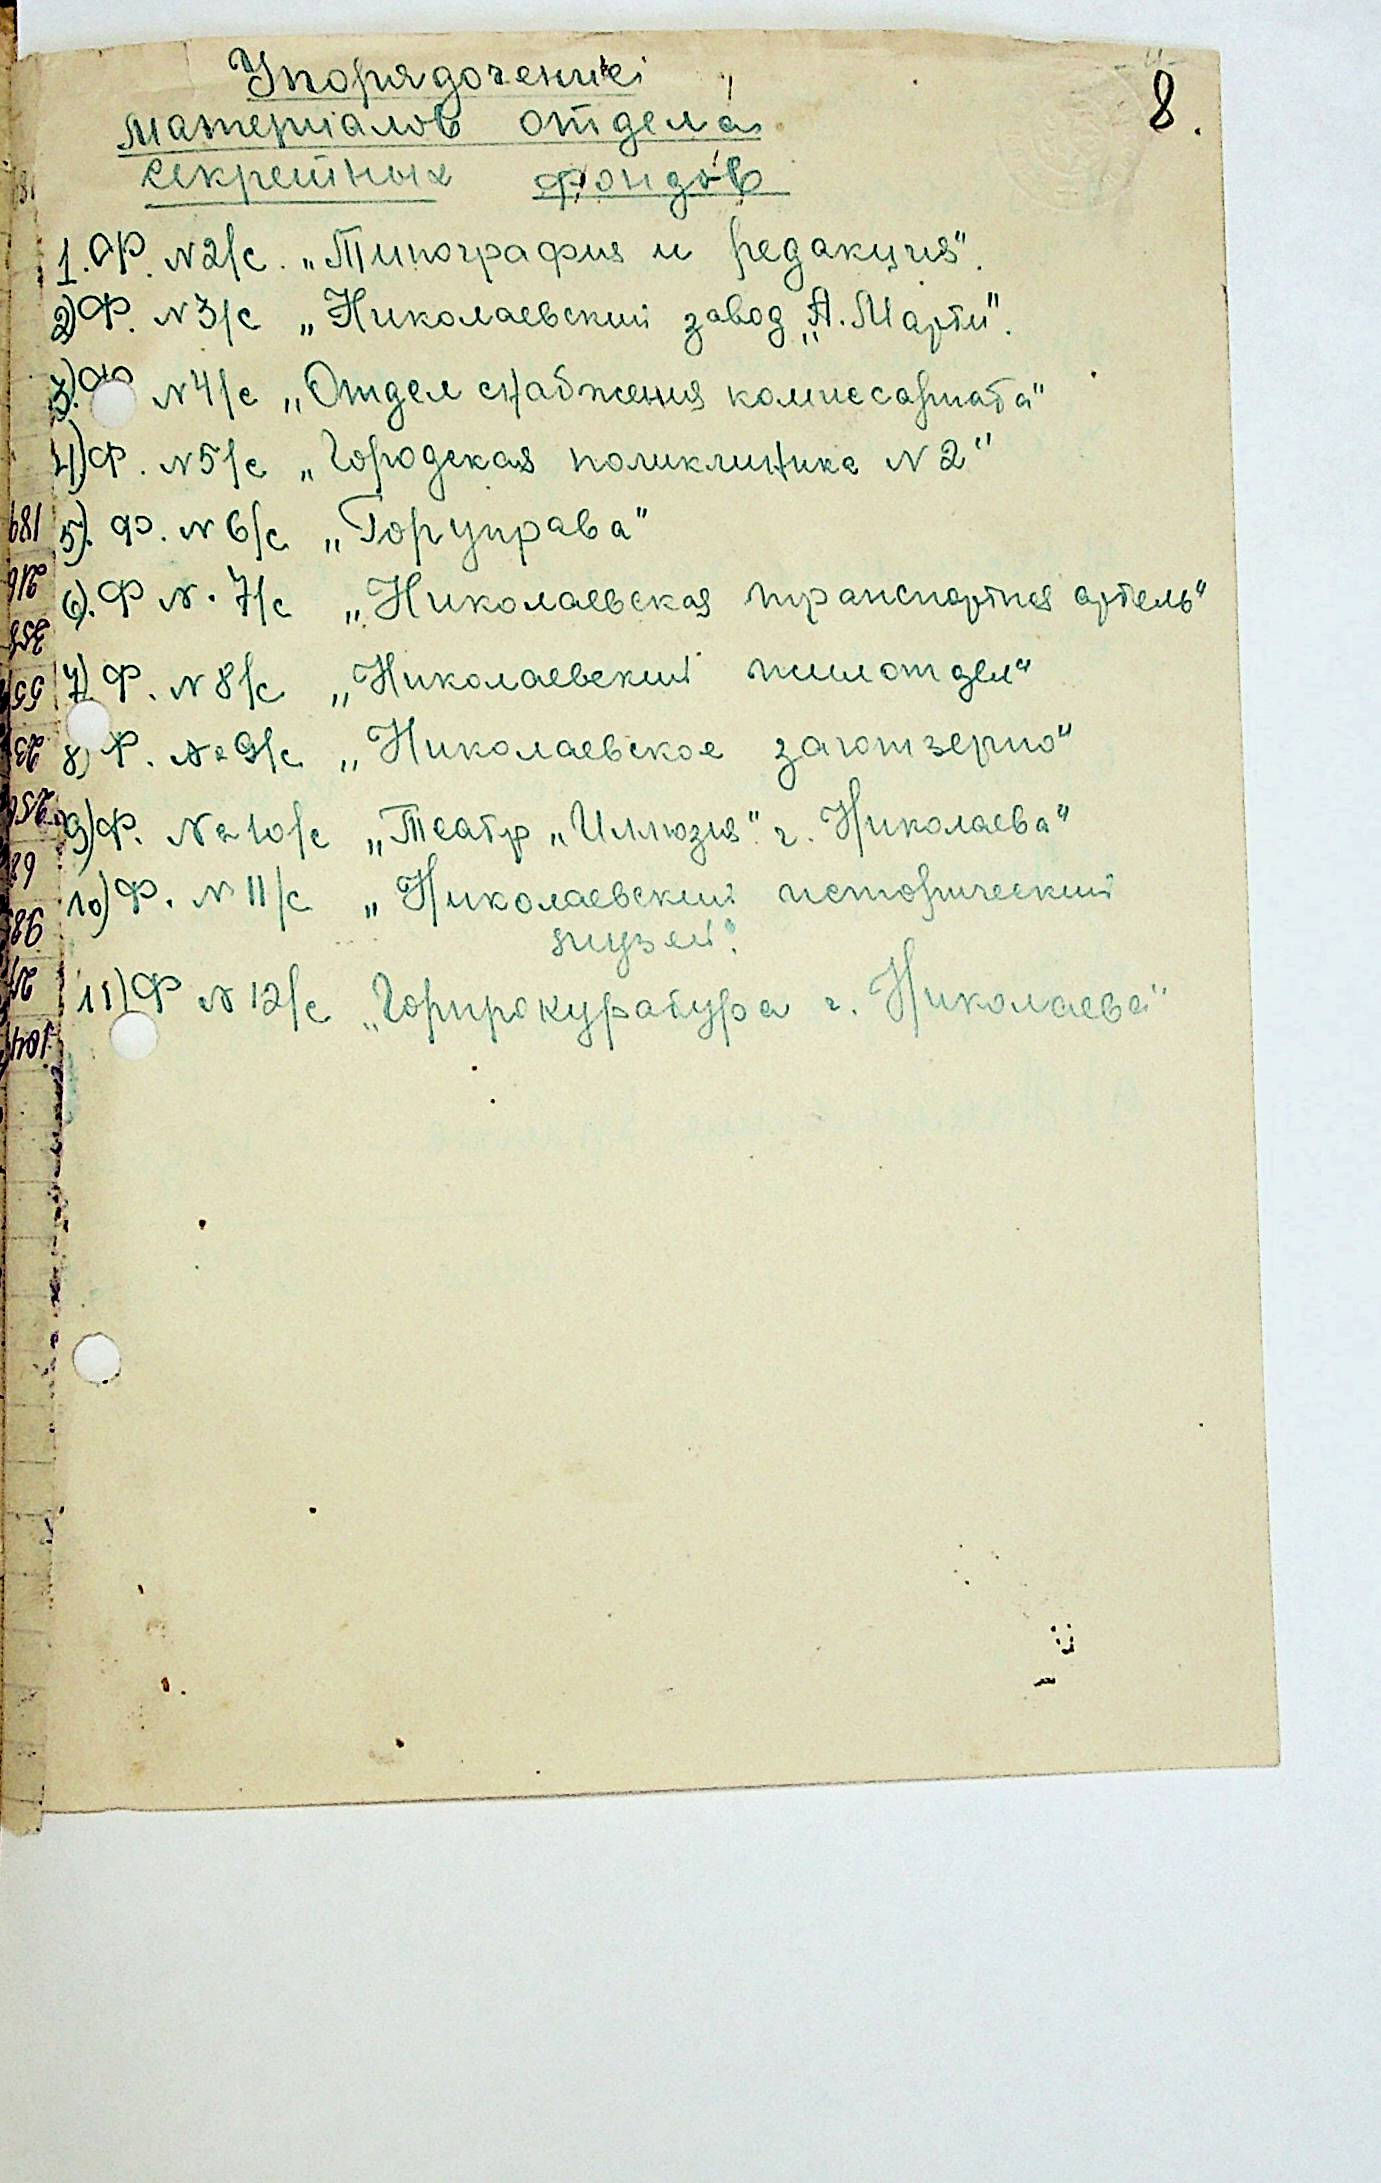 8.
Упорядочение
материалов отдела
секретных фондов
1. Ф. N2/с. „Типография и редакция".
2) Ф. N3/с „Николаевский завод „А. Марти".
3). Ф N4/с „Отдел снабжения комиссариата"
4) Ф. N5/с „Городская поликлиника N2"
5). Ф. N6/с „Горуправа"
6). Ф N. 7/с „Николаевская транспортная артель"
7). Ф. N8/с „Николаевский жилотдел"
8) Ф. №9/с „Николаевское заготзерно"
9) Ф. №10/с „Театр „Иллюзия" г. Николаева"
10) Ф. N11/с „Николаевский исторический
музей".
11) Ф N12/с „Горпрокуратура г. Николаева"
189
216
358
55
23
256
63
98
27
104